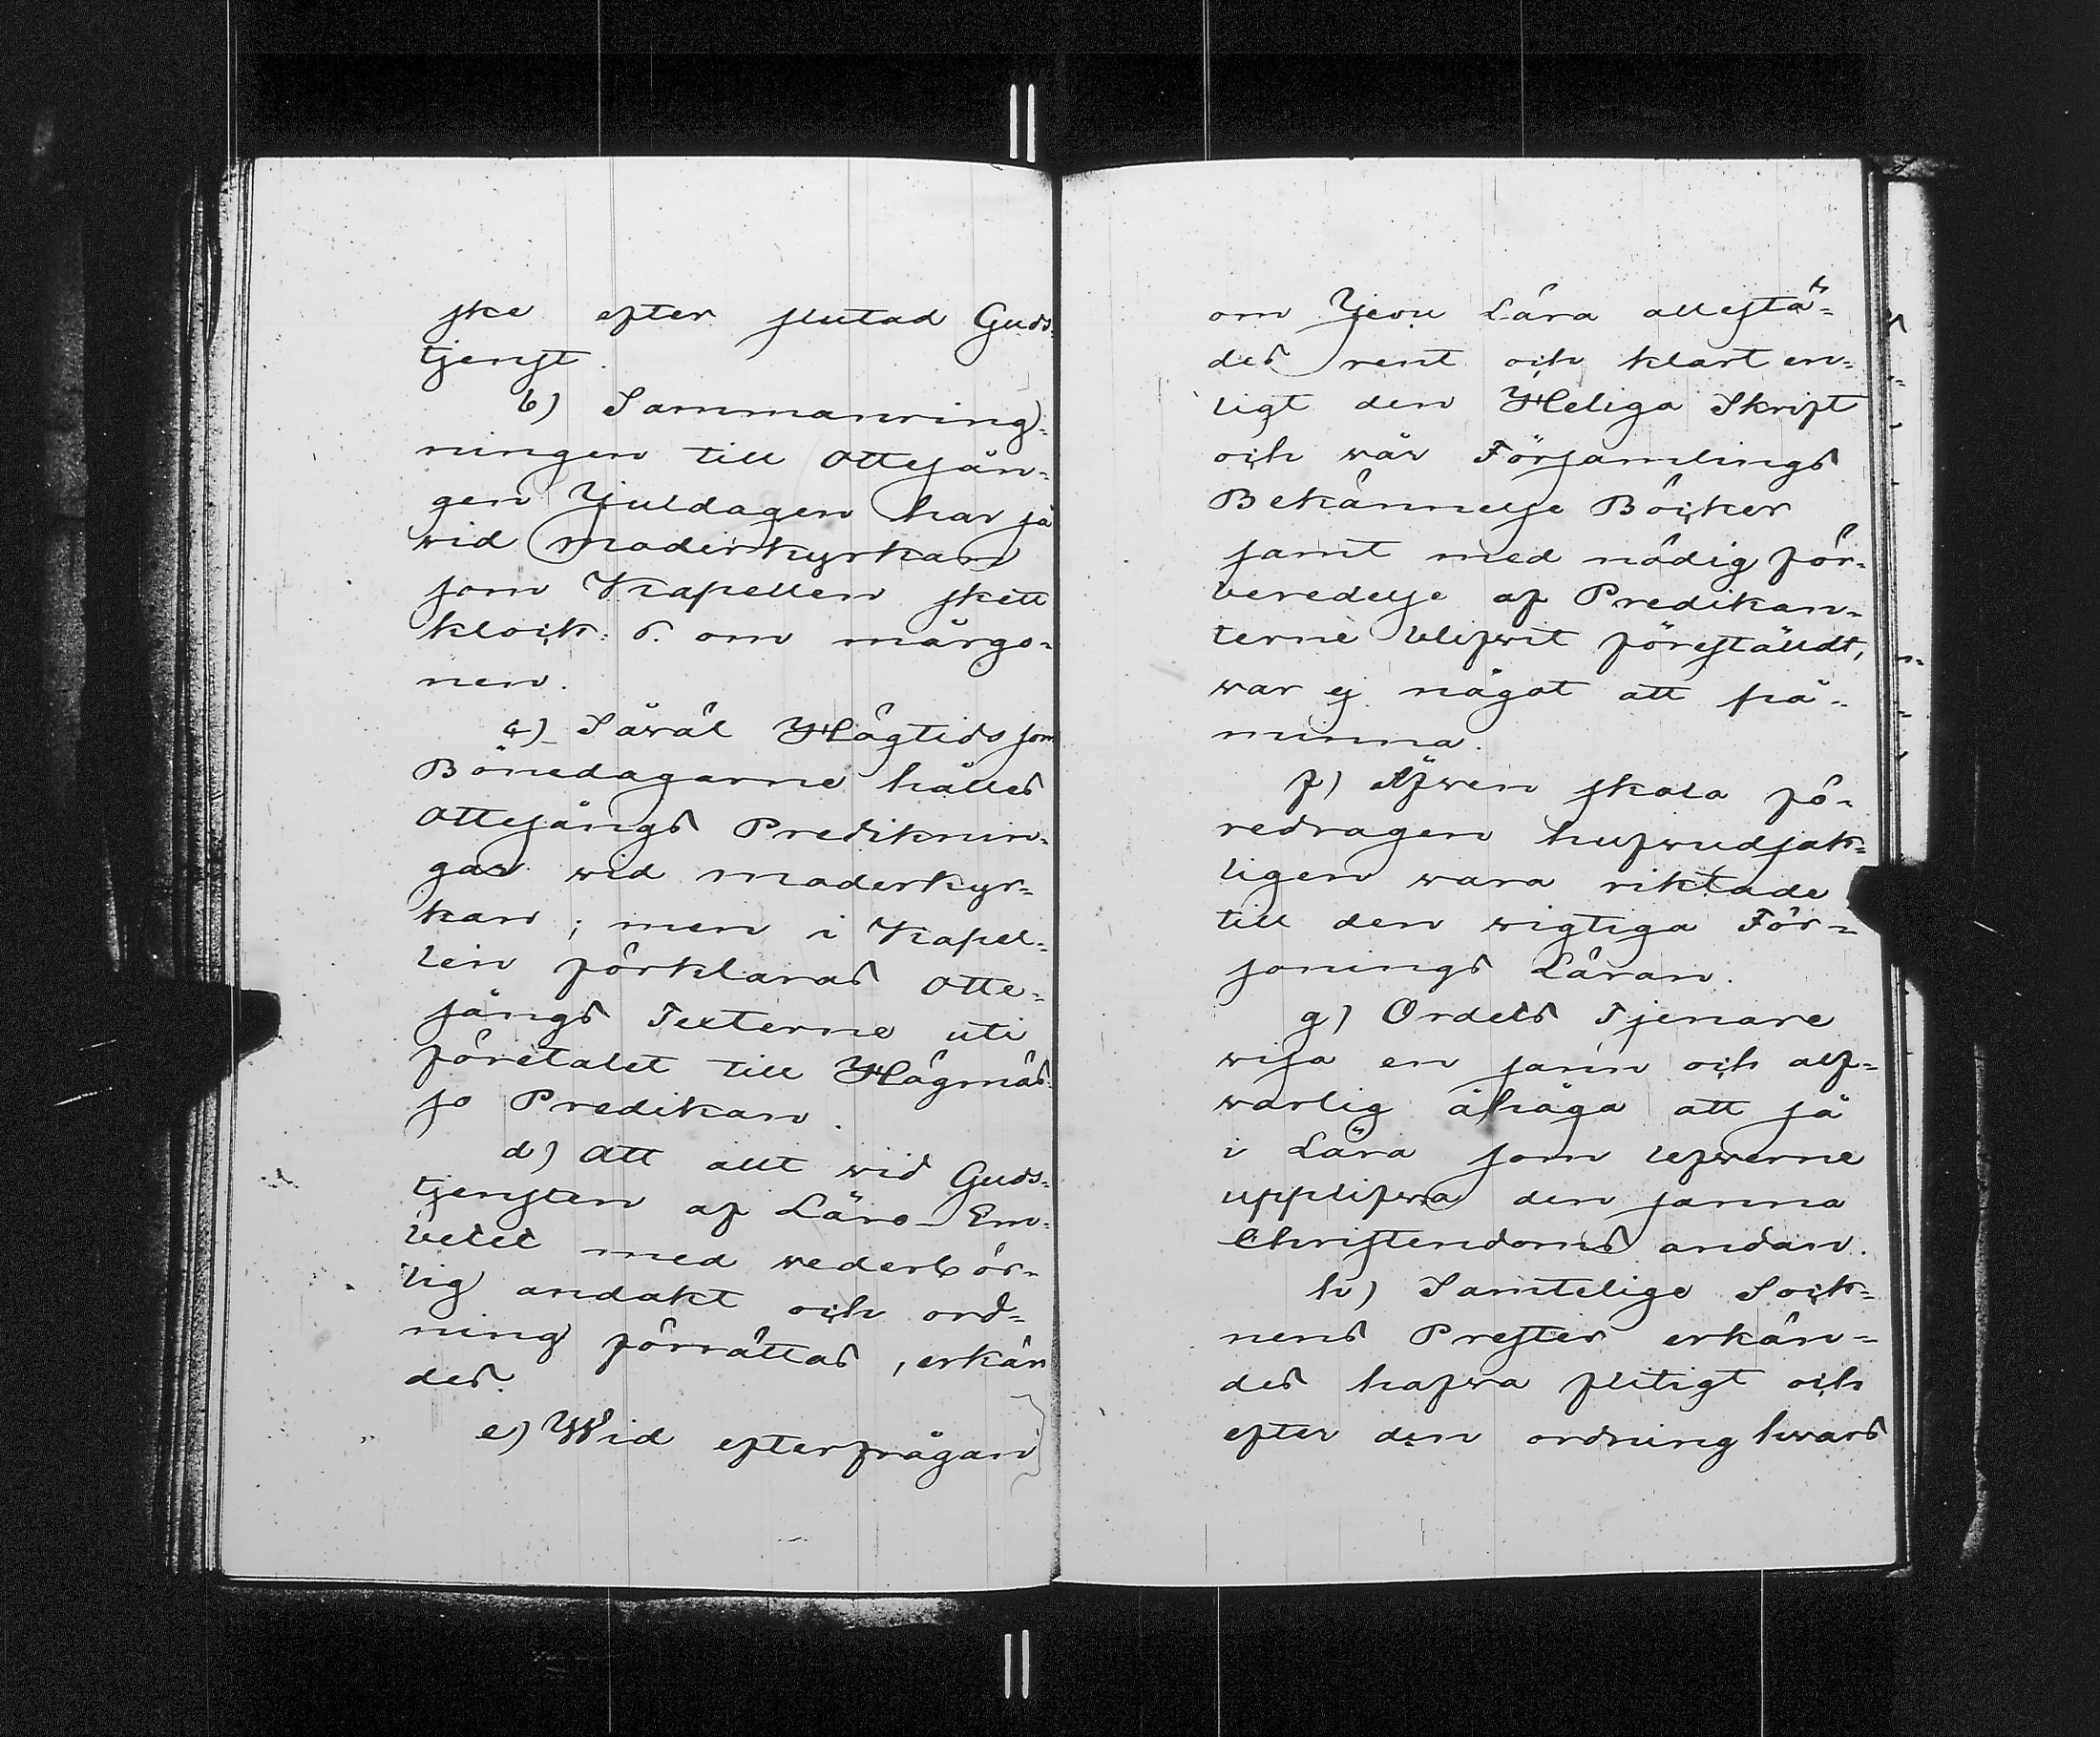 ske efter slutad Guds-
tjenst.
b) Sammanring-
ningen till Ottesån-
gen Juldagen har så
wid Moderkyrkan
som Kapellen skett
klock: 6. om mårgo-
nen.
c) Såwäl Högtids som
Bönedagarne hålles
Ottesångs Prediknin-
gar wid Moderkyr-
kan; men i Kapel-
len förklaras Otte-
sångs Texterne uti
företalet till Högmäs-
so Predikan.
d) Att allt wid Guds-
tjensten af Läro-Em-
betet med wederbör-
lig andakt och ord-
ning förrättas, erkän
des.
e) Wid efterfrågan
om Jesu Lära allestä-
des rent och klart en-
ligt den Heliga Skrift
och wår Församlings
Bekännelse Böcker
samt med nödig för-
beredelse af Predikan-
terne blifwit föreställdt,
war ej något att på-
minna.
f) Äfwen skola fö-
redragen hufwudsak-
ligen wara riktade
till den wigtiga För-
sonings Läran.
g) Ordets Tjenare
wisa en sann och alf-
warlig åhåga att så
i Lära som lefwerne
upplifwa den sanna
Christendoms andan.
h) Samtelige Sock-
nens Prester erkän-
des hafwa flitigt och
efter den ordning hwars